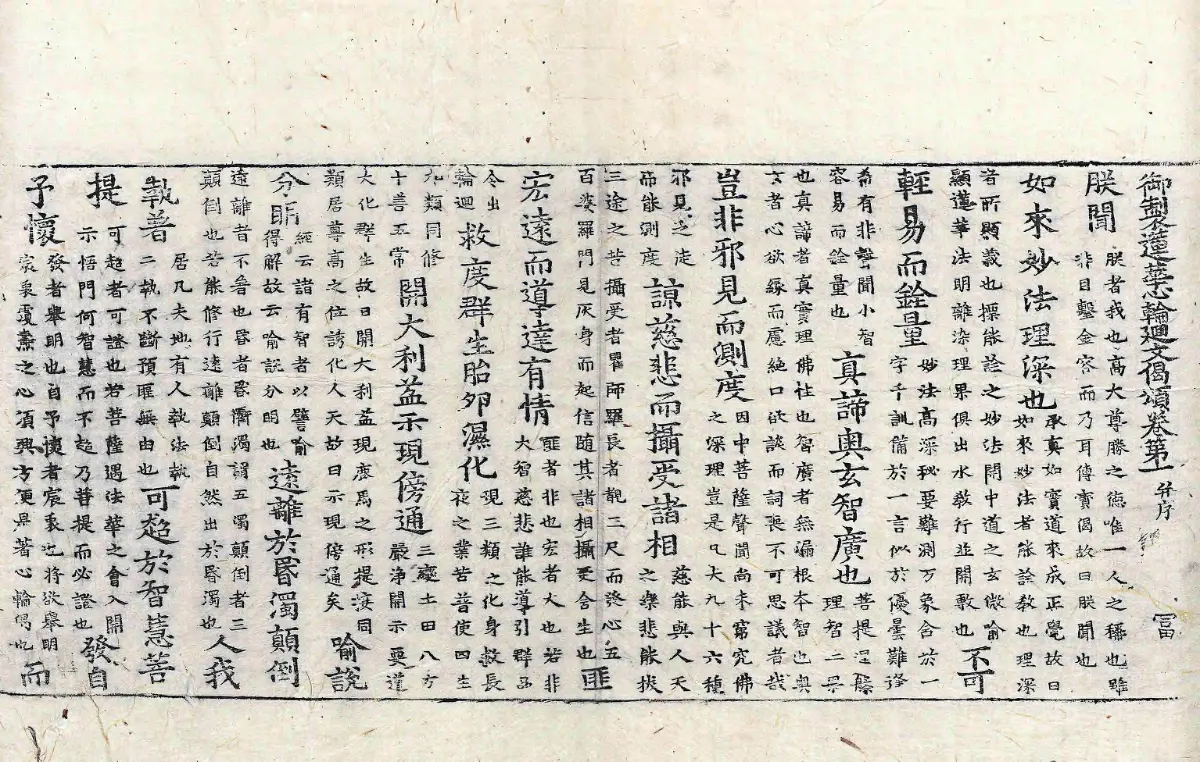 御製蓮華心輪廻文偈頌卷第一 并序 冨
朕聞
朕者我也高大尊勝之德唯一人之稱也雖
非目鑿金容而乃耳傳寶偈故曰朕聞也
如來妙法理深也
承真如實道來成正覺故曰
如來妙法者能詮教也理深
者所顯義也操能詮之妙法問中道之玄微喻
顯蓮華法明離染理果俱出水敎行並開敷也
不可
輕易而銓量
妙法高深秘要難測万象含於一
字千訓備於一言似於優曇難逢
希有非聲聞小智
容易而詮量也
真諦奥玄智廣也
菩提涅槃
理智二果
也真諦者真實理佛社也智廣者無漏根本智也奥
玄者心欲緣而慮絶口欲談而詞喪不可思議者哉
豈非邪見而測度
因中菩薩聲聞尚未窮究佛
之深理豈是凡夫九十六種
邪見之徒
而能測度
諒慈悲而攝受諸相
慈能與人天
之樂悲能抜
三途之苦攝受者瞿師羅長者覩三尺而發心五
百婆羅門見灰身而起信随其諸相攝受含生也
匪
宏遠而導達有情
匪者非也宏者大也若非
大智慈悲誰能導引群品
令出
輪迴
救度群生胎卵濕化
現三類之化身救長
夜之業苦普使四生
九類同修
十善五常
開大利益示現傍通
三變土田八方
嚴淨開示要道
大化群生故曰開大利益現鹿馬之形提接同
類居尊高之位誘化人天故曰示現傍通矣
喻說
分明
經云諸有智者以譬喻
得解故云喻說分明也
遠離於昏濁顛倒
遠離者不沓也昏者昏濁濁謂五濁顛倒者三
顛倒也若能修行遠離顛倒自然出於昏濁也
人我
執善
居凡夫地有人執法執
二執不斷預匪無由也
可趍於智慧菩
提
可起者可證也若菩薩遇法華之會入開
示悟門何智慧而不起乃菩提而必證也
發自
予懷
發者舉明也自予懷者宸衷也將欲舉明
宸衷虔熏之心須興方便具著心輪偈也
而